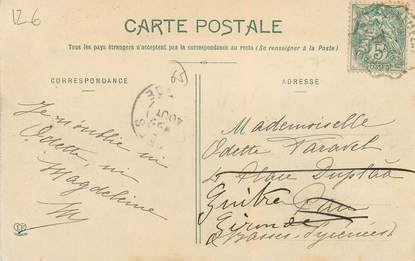 12€
CARTE POSTALE
Tous les pays étrangers n'acceptent pas la correspondance au recto (Se renseigner à la Poste)
CORRESPONDANCE
ADRESSE
Je n'oublie ni
Odette, ni
Magdeleine
Mademoiselle
Odette
Place
Guitres
Pau
Gironde
Basses-Pyrénées
AOUT
5